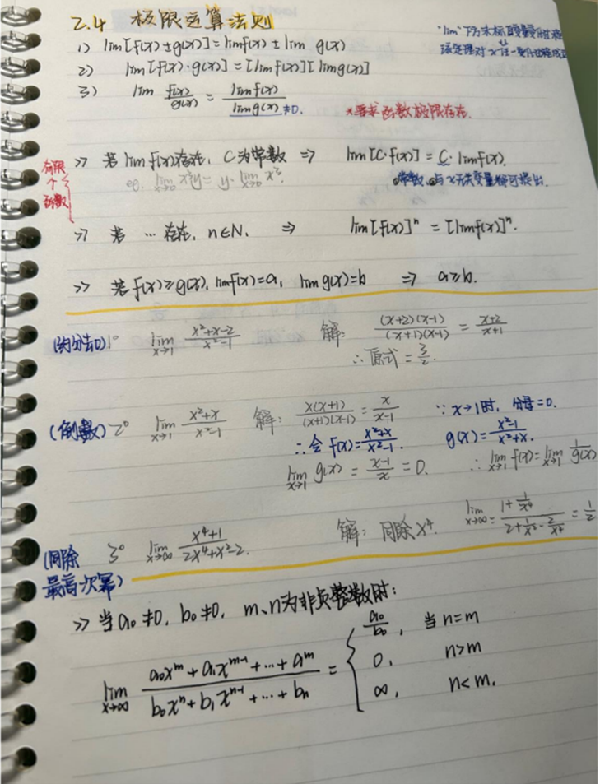 2.4 极限运算法则
1) lim[f(x)±g(x)]=limf(x)±lim g(x)
"lim"下方未标
2) lim[f(x)·g(x)]=[limf(x)][limg(x)]
3) lim f(x)/g(x) = limf(x)/limg(x) ≠0.
*要求函数极限存在.
有限个函数
>> 若limf(x)存在, C为常数 ⇒ lim[C·f(x)] = C·limf(x).
lim x→0 x²y = y·lim x→0 x².
常数, 与x无关变量都可提出.
>> 若 … 存在, n∈N, ⇒ lim[f(x)]ⁿ = [limf(x)]ⁿ.
>> 若f(x)≥g(x), limf(x)=a, limg(x)=b ⇒ a≥b.
(约分法) 1° lim x→1 (x²+x-2)/(x²-1) 解: (x+2)(x-1)/(x+1)(x-1) = (x+2)/(x+1)
∴原式=3/2
(倒数) 2° lim x→1 (x²+x)/(x²-1) 解: x(x+1)/(x+1)(x-1) = x/(x-1) ∵x→1时, 分母=0.
∴令f(x)=(x²+x)/(x²-1). g(x)=(x²-1)/(x²+x).
lim x→1 g(x)=(x-1)/x=0. ∴lim x→1 f(x)=lim x→1 1/g(x)
(同除最高次幂) 3° lim x→∞ (x⁴+1)/(2x⁴+x²-2) 解: 同除x⁴. lim x→∞ =1/2
>> 当a₀≠0, b₀≠0, m、n为非负整数时:
lim x→∞ (a₀xᵐ+a₁xᵐ⁻¹+…+aₘ)/(b₀xⁿ+b₁xⁿ⁻¹+…+bₙ) = { a₀/b₀, 当n=m
0, n>m
∞, n<m.